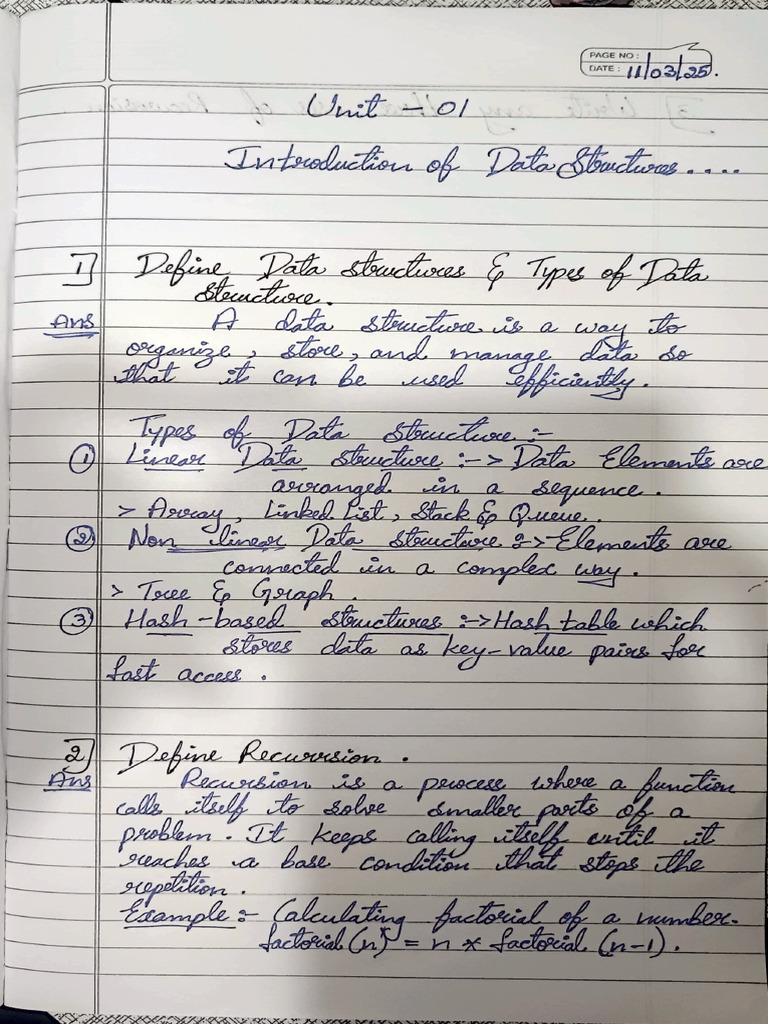 PAGE NO :
DATE : 11/03/25.
Unit - 01
Introduction of Data Structures....
1] Define Data structures & Types of Data
structure.
Ans A data structure is a way to
organize, store, and manage data so
that it can be used efficiently.
Types of Data structure :-
① Linear Data structure :-> Data Elements are
arranged in a sequence.
> Array, Linked List, Stack & Queue.
② Non linear Data structure :-> Elements are
connected in a complex way.
> Tree & Graph.
③ Hash-based structures :-> Hash table which
stores data as key-value pairs for
fast access.
2] Define Recurrsion.
Ans Recursion is a process where a function
calls itself to solve smaller parts of a
problem. It keeps calling itself until it
reaches a base condition that stops the
repetition.
Example :- Calculating factorial of a number.
factorial (n) = n * factorial (n-1).